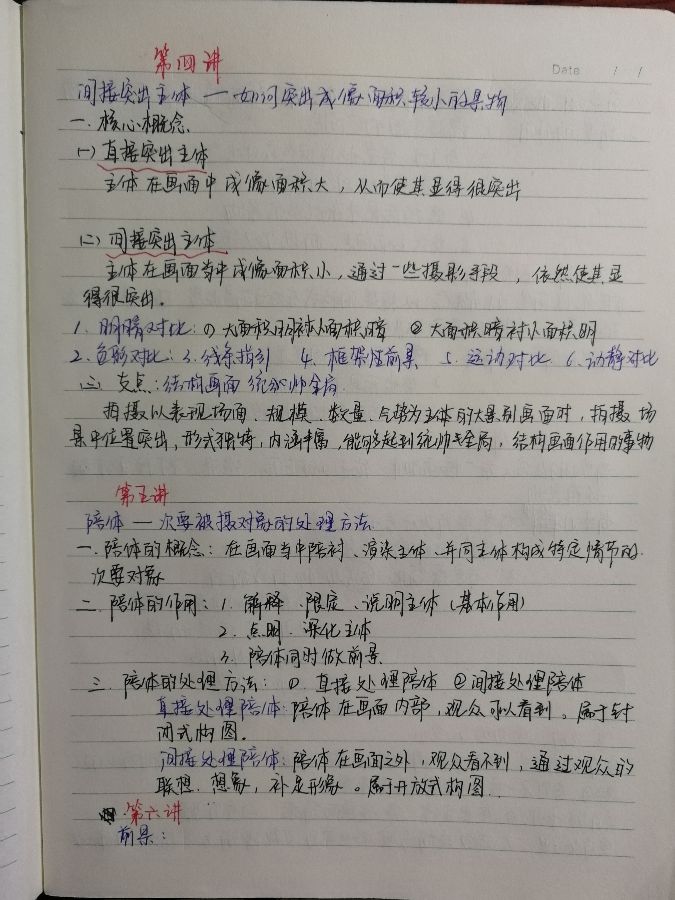 第四讲
Date / /
间接突出主体 — 如何突出成像面积较小的景物
一. 核心概念
(一) 直接突出主体
主体在画面中成像面积大，从而使其显得很突出
(二) 间接突出主体
主体在画面当中成像面积小，通过一些摄影手段，依然使其显
得很突出。
1. 明暗对比: ① 大面积明衬小面积暗 ② 大面积暗衬小面积明
2. 色彩对比: 3. 线条指引 4. 框架性前景 5. 运动对比 6. 动静对比
(三) 支点: 结构画面 统帅全局
拍摄以表现场面、规模、数量、气势为主体的大景别画面时，拍摄场
景中位置突出，形式独特，内涵丰富，能够起到统帅全局，结构画面作用的事物
第五讲
陪体 — 次要被摄对象的处理方法
一. 陪体的概念: 在画面当中陪衬、渲染主体、并同主体构成特定情节的
次要对象
二. 陪体的作用: 1. 解释、限定、说明主体 (基本作用)
2. 点明. 深化主体
3. 陪体同时做前景
三. 陪体的处理方法: ①. 直接处理陪体 ②间接处理陪体
直接处理陪体: 陪体在画面内部，观众可以看到。属于封
闭式构图。
间接处理陪体: 陪体在画面之外，观众看不到，通过观众的
联想. 想象，补足形象。属于开放式构图.
第六讲
前景: